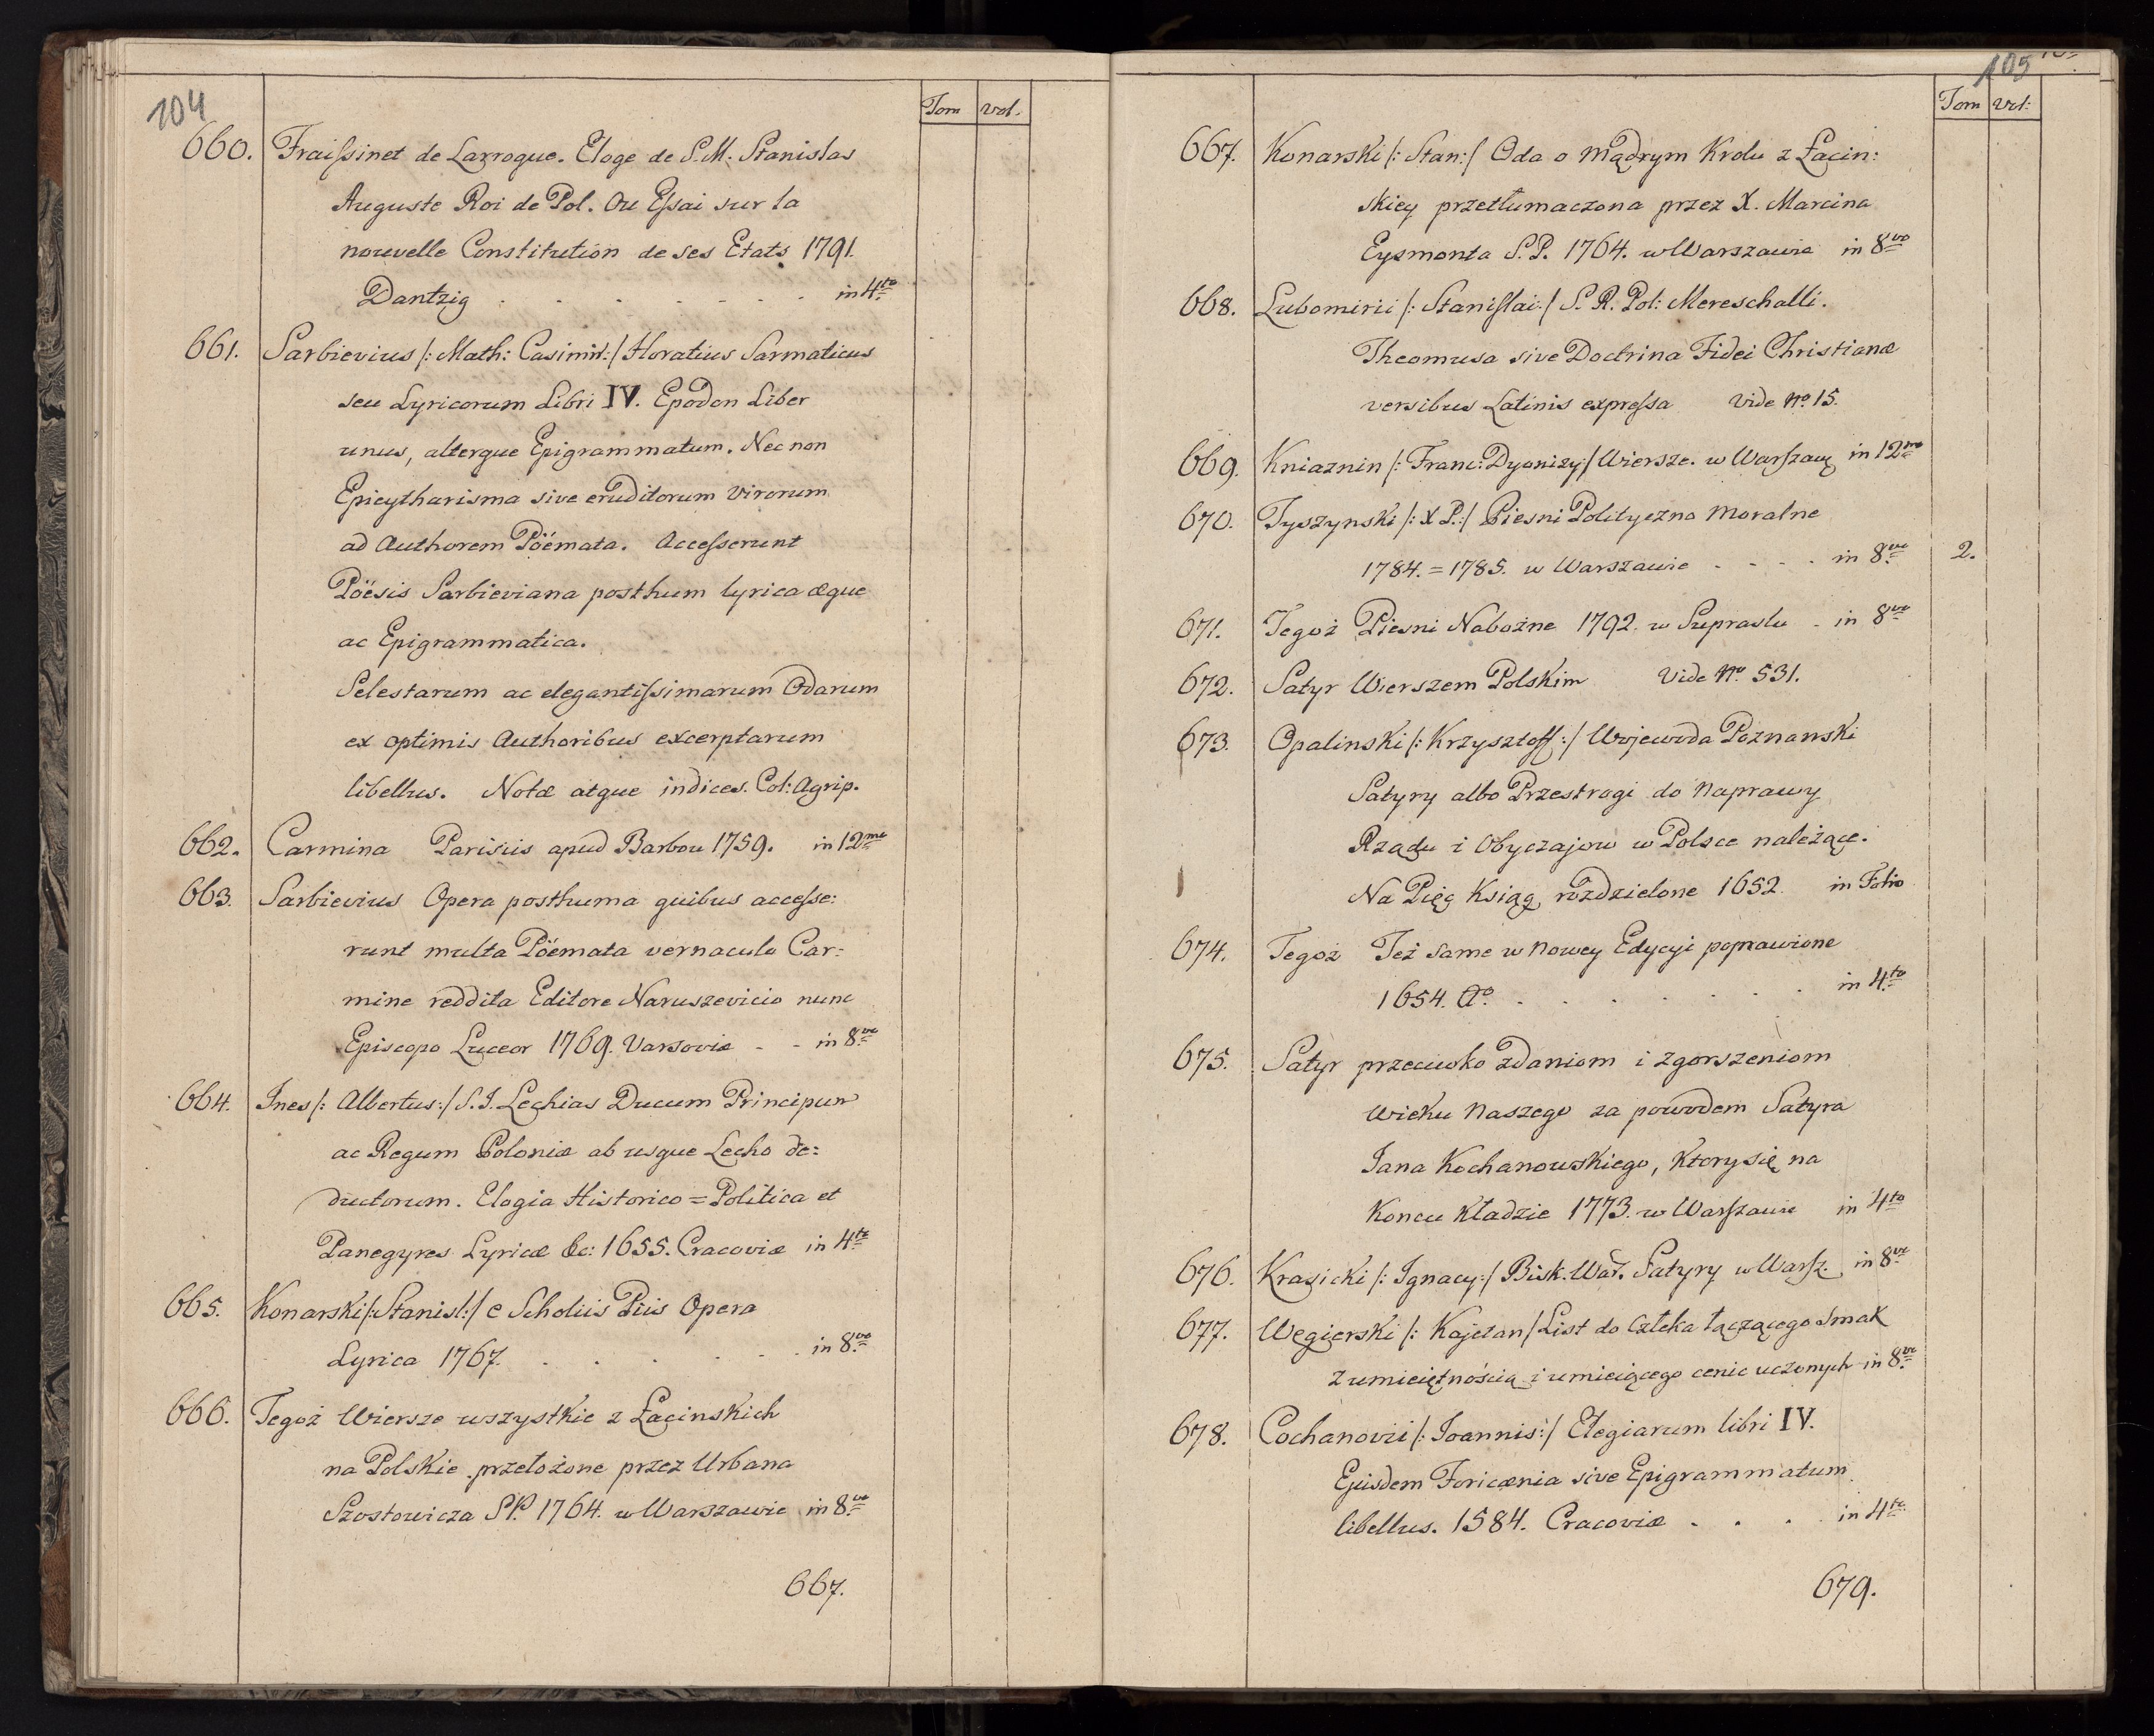 104
Tom vol.
660. Fraiſsinet de Larrogue. Eloge de S. M. Stanislas
Auguste Roi de Pol. Ou Eſsai sur la
nouvelle Constitution de ses Etats 1791.
Dantzig . . . . . . . in 4to
661. Sarbievius /: Math: Casimir:/ Horatius Sarmaticus
seu Lyricorum Libri IV. Epodon Liber
unus, alterque Epigrammatum. Nec non
Epicytharisma sive eruditorum virorum
ad Authorem Pöémata. Acceſserunt
Pöësis Sarbieviana posthum lyrica æque
ac Epigrammatica.
Selestarum ac elegantiſsimarum Odarum
ex optimis Authoribus excerptarum
libellus. Notæ atque indices. Col: Agrip.
662. Carmina Parisiis apud Barbou 1759. in 12mo
663. Sarbievius Opera posthuma quibus acceſse:
runt multa Pöémata vernaculo Car:
mine reddita Editore Naruszevicio nunc
Episcopo Luceor 1769. Varsoviæ - - in 8vo
664. Ines /: Albertus:/ S. I. Lechias Ducum Principum
ac Regum Poloniæ ab usque Lecho de:
ductorum. Elogia Historico = Politica et
Panegyres Lyricæ &c: 1655. Cracoviæ in 4to
665. Konarski /:Stanisl:/ e Scholiis Piis Opera
Lyrica 1767. . . . . . . in 8vo
666. Tegoż Wiersze wszystkie z Łacinskich
na Polskie przełożone przez Urbana
Szostowicza S.P. 1764. w Warszawie in 8vo
667.
105
Tom Vol:
667. Konarski /: Stan:/ Oda o Mądrym Krolu z Łacin:
skiey przetłumaczona przez X. Marcina
Eysmonta S. P. 1764. w Warszawie in 8vo
668. Lubomirii /: Staniſlai:/ S. R. Pol: Mereschalli.
Theomusa sive Doctrina Fidei Christianæ
versibus Latinis expreſsa Vide No 15.
669. Kniaznin /: Franc: Dyonizy:/ Wiersze. w Warſzawę in 12mo
670. Tyszynski /: X P.:/ Piesni Polityczno Moralne
1784. = 1785. w Warszawie . . . . in 8vo 2.
671. Tegoż Piesni Nabożne 1792. w Supraslu . in 8vo
672. Satyr Wierszem Polskim Vide No 531.
673. Opalinski /: Krzysztoff:/ Wojewoda Poznanski
Satyry albo Przestrogi do Naprawy
Rządu i Obyczajow w Polsce należące.
Na Pięć Ksiąg rozdzielone 1652. in Folio
674. Tegoż Też same w Nowey Edycyi poprawione
1654. Ao. . . . . . . . in 4to
675. Satyr przeciwko zdaniom i zgorszeniom
wieku Naszego za powodem Satyra
Jana Kochanowskiego, Ktory się na
Koncu Kładzie 1773. w Warſzawie in 4to
676. Krasicki /: Ignacy:/ Bisk. War. Satyry w Warſz. in 8vo
677. Węgierski /: Kajetan/ List do Człeka łączącego Smak
z umieiętnością i umieiącego cenic uczonych in 8vo
678. Cochanovii /: Joannis:/ Elegiarum libri IV.
Ejusdem Foricœnia sive Epigrammatum
libellus. 1584. Cracoviæ . . . . in 4to
679.